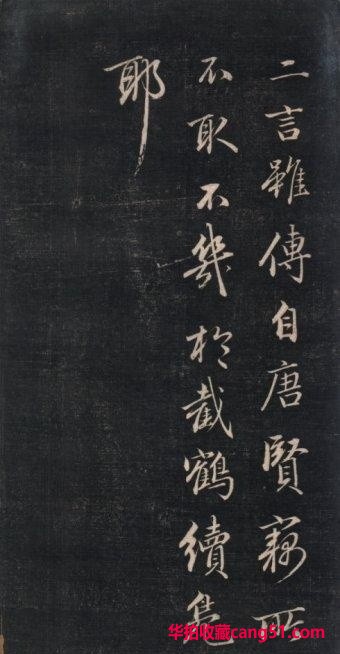 二言雖傳自唐賢竊所
不取不幾於截鶴續鳧
耶
华拍收藏cang51.com